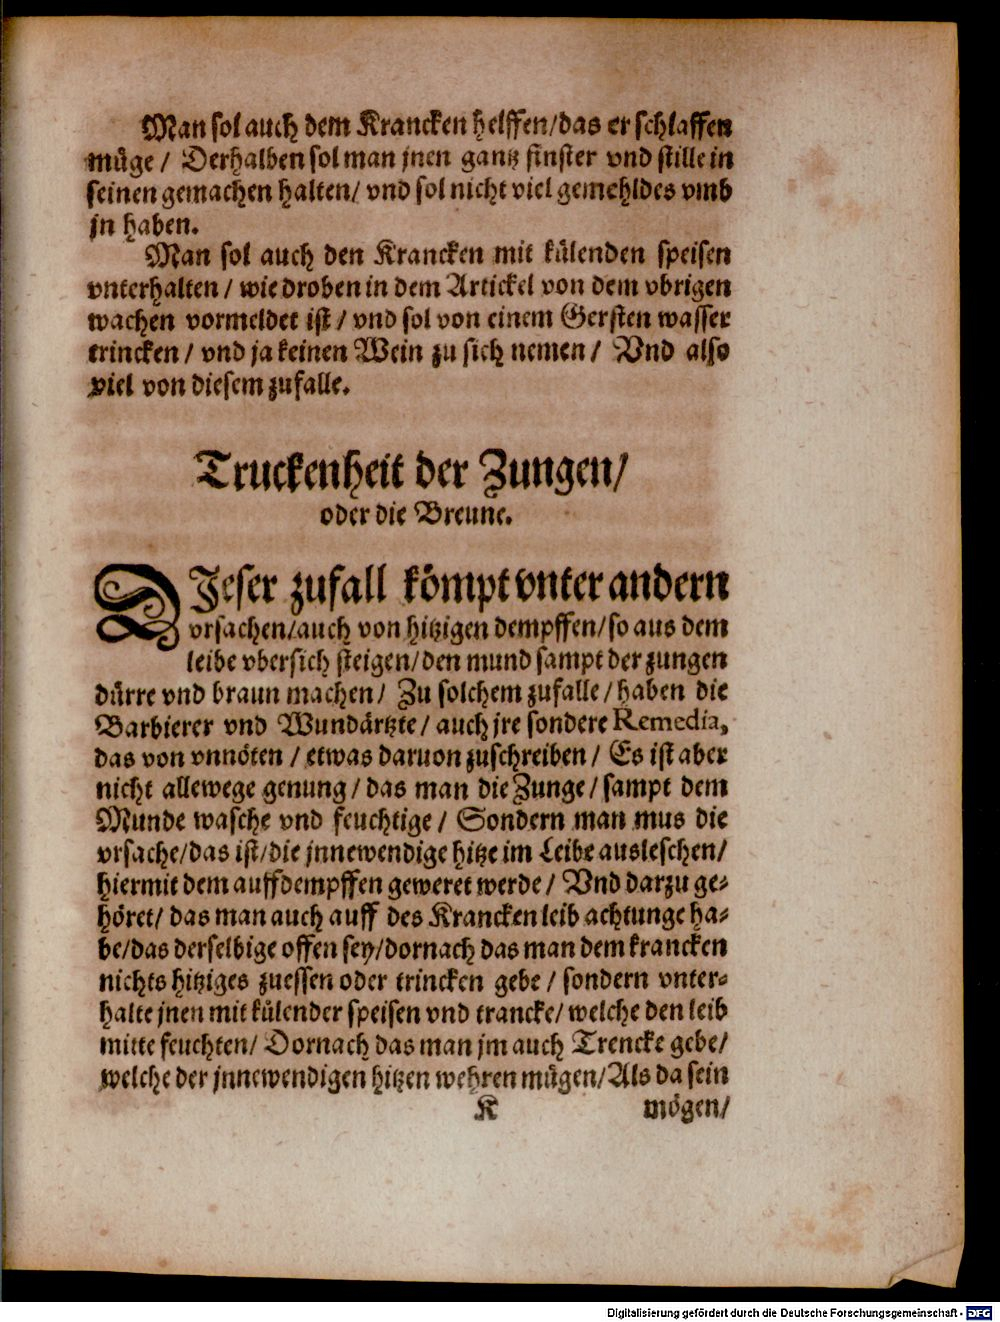 Man sol auch dem Krancken helffen/das er schlaffen
müge / Derhalben sol man jnen gantz finster vnd stille in
seinen gemachen halten/ vnd sol nicht viel gemehldes vmb
jn haben.
Man sol auch den Krancken mit külenden speisen
vnterhalten / wie droben in dem Artickel von dem vbrigen
wachen vormeldet ist / vnd sol von einem Gersten wasser
trincken / vnd ja keinen Wein zu sich nemen / Vnd also
viel von diesem zufalle.
Truckenheit der Zungen/
oder die Breune.
DJeser zufall kömpt vnter andern
vrsachen/auch von hitzigen dempffen/so aus dem
leibe vbersich steigen/den mund sampt der zungen
dürre vnd braun machen/ Zu solchem zufalle/haben die
Barbierer vnd Wundärtzte/ auch jre sondere Remedia,
das von vnnöten / etwas daruon zuschreiben / Es ist aber
nicht allewege genung/das man die Zunge/sampt dem
Munde wasche vnd feuchtige / Sondern man mus die
vrsache/das ist/die jnnewendige hitze im Leibe ausleschen/
hiermit dem auffdempffen geweret werde / Vnd darzu ge-
höret/ das man auch auff des Krancken leib achtunge ha-
be/das derselbige offen sey/dornach das man dem krancken
nichts hitziges zuessen oder trincken gebe / sondern vnter-
halte jnen mit külender speisen vnd trancke/ welche den leib
mitte feuchten/ Dornach das man jm auch Trencke gebe/
welche der jnnewendigen hitzen wehren mügen/Als da sein
K mögen/
Digitalisierung gefördert durch die Deutsche Forschungsgemeinschaft - DFG